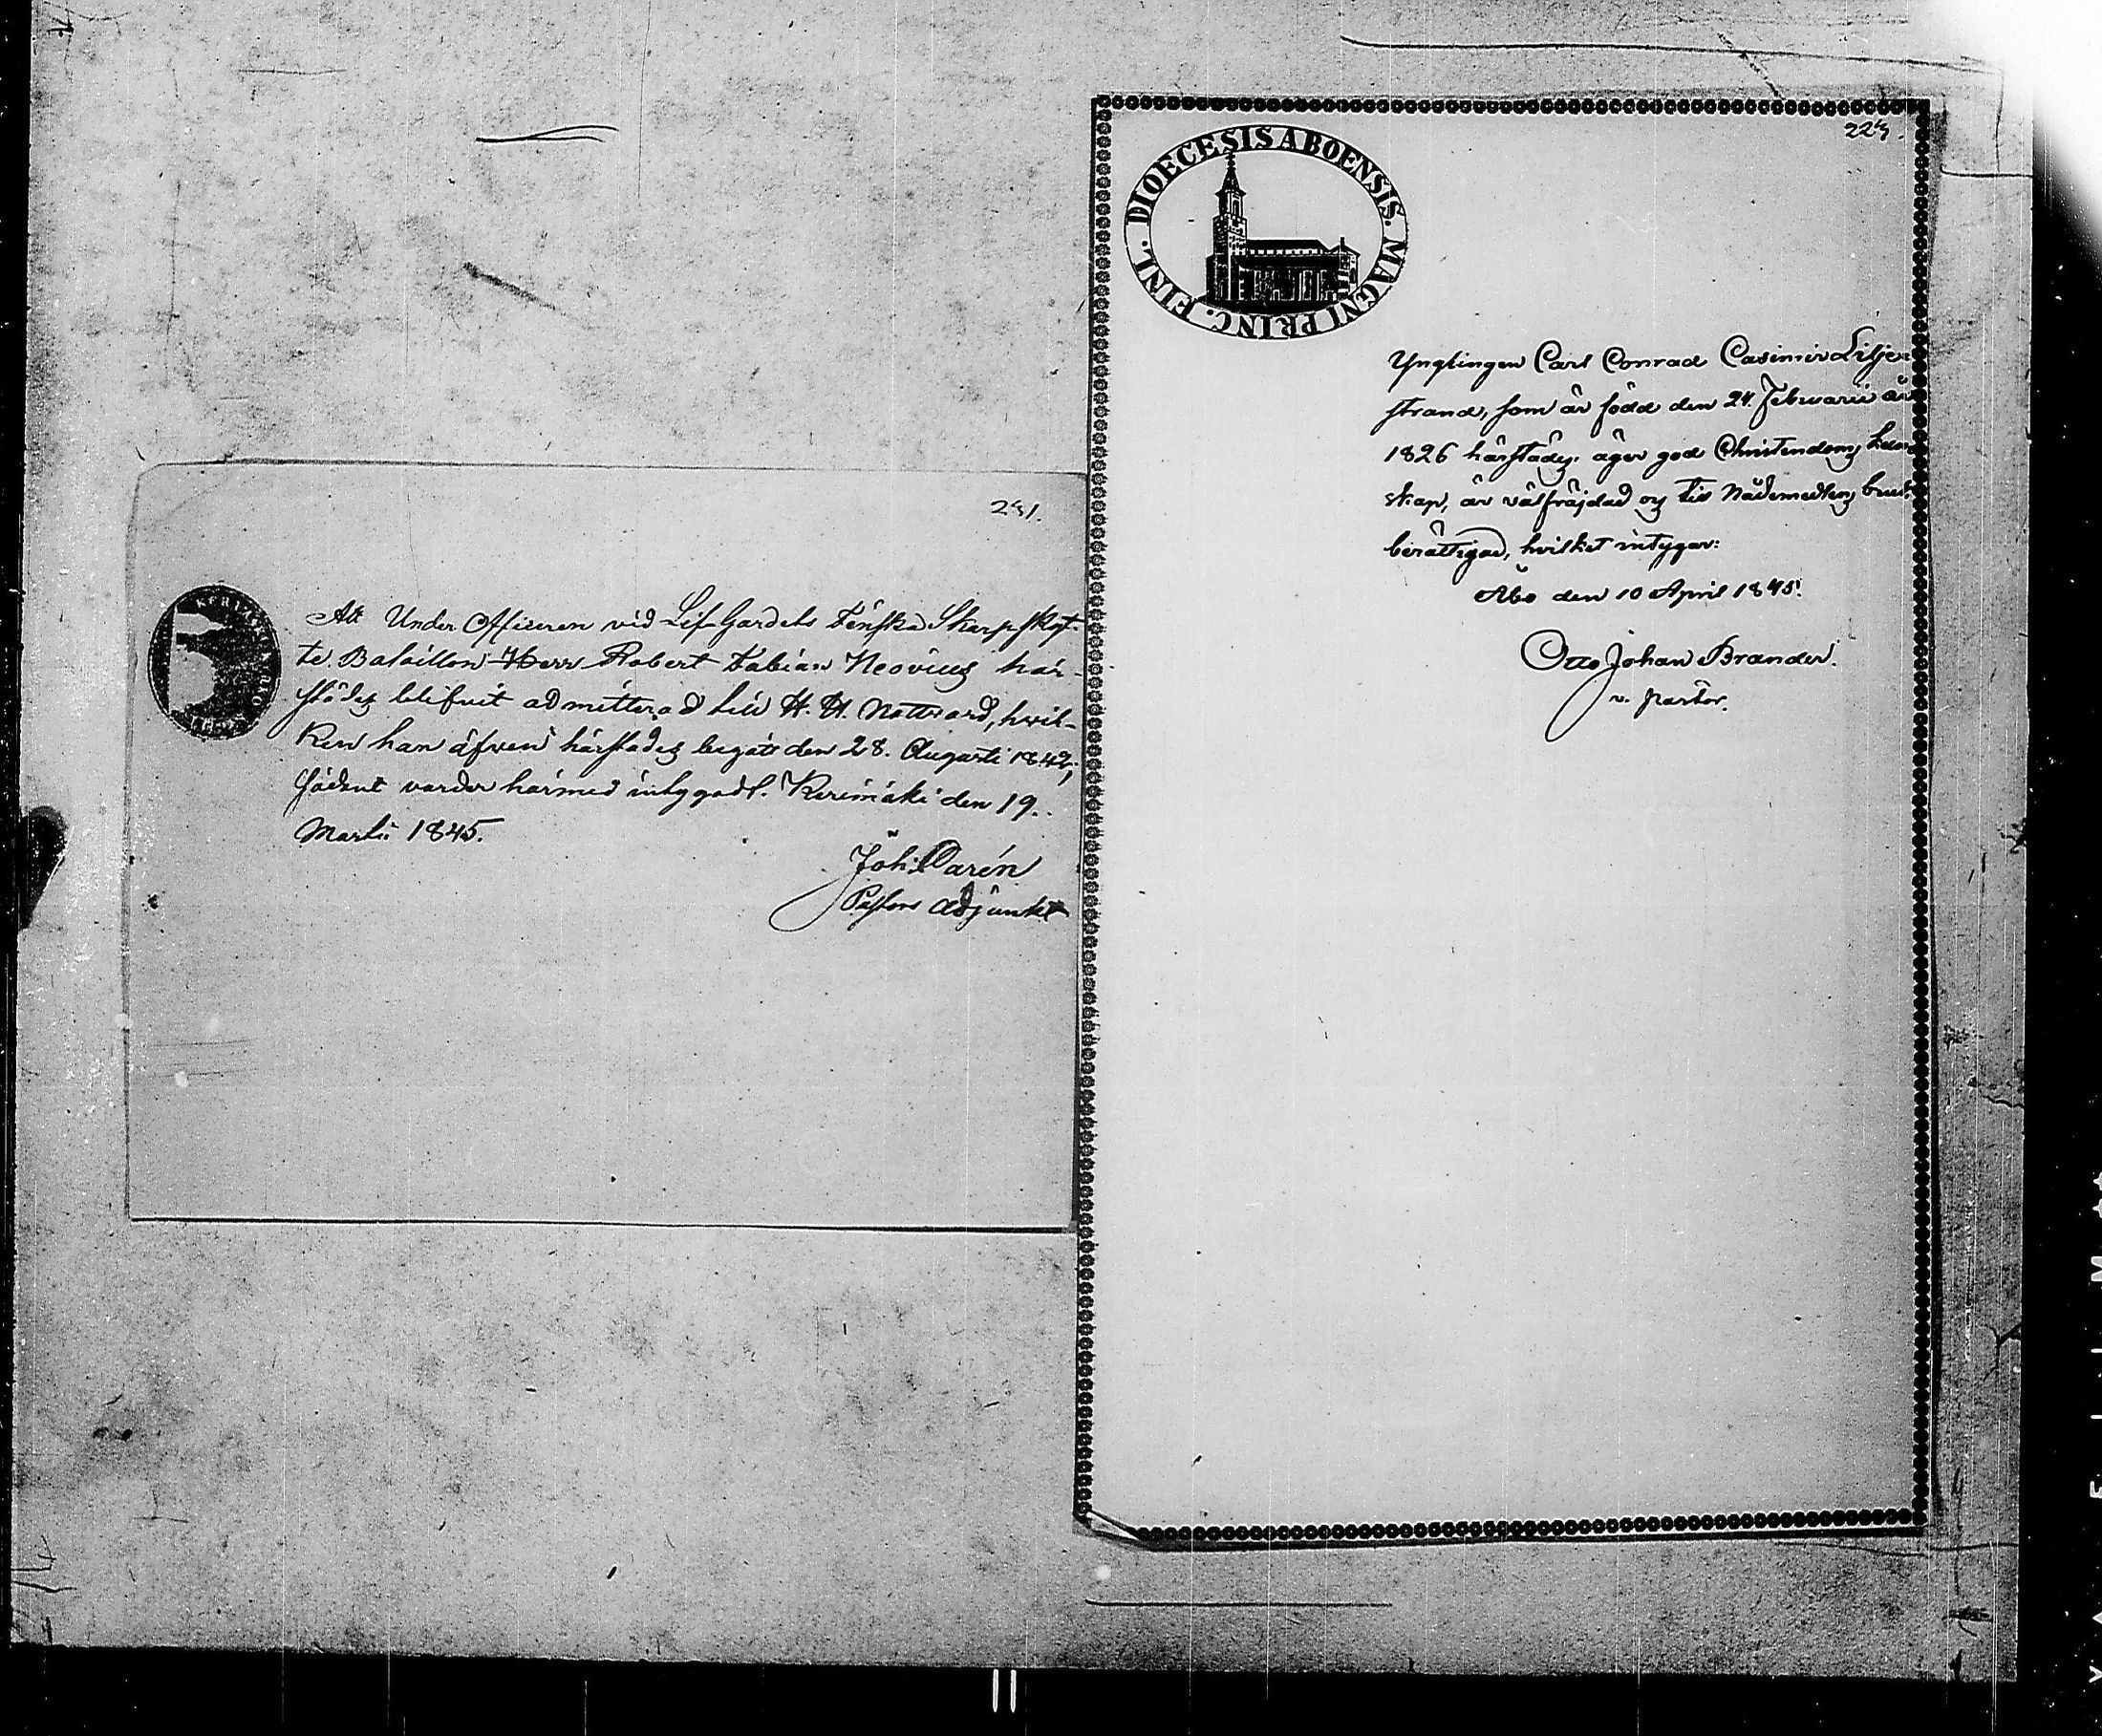 231.
Att Under Officeren vid Lif Gardets Finska Skarpskyt-
te Bataillon Herr Robert Fabian Neovius här-
städes blifvit admitterad till H. H. Nattvard, hvil-
ken han äfven härstädes begått den 28. Augusti 1842,
sådant varder härmed intygadt. Kerimäki den 19.
Martii 1845.
Joh: Carén
Pastors Adjunkt
223.
DIOECESIS ABOENSIS. MAGNI PRINC. FINL.
Ynglingen Carl Conrad Casimir Lilje-
strand, som är född den 24. Februarii år
1826 härstädes, äger god Christendoms kun-
skap, är välfräjdad og till Nådemedlens bruk
berättigad, hvilket intygar:
Åbo den 10 April 1845.
Otto Johan Brander.
v. pastor.